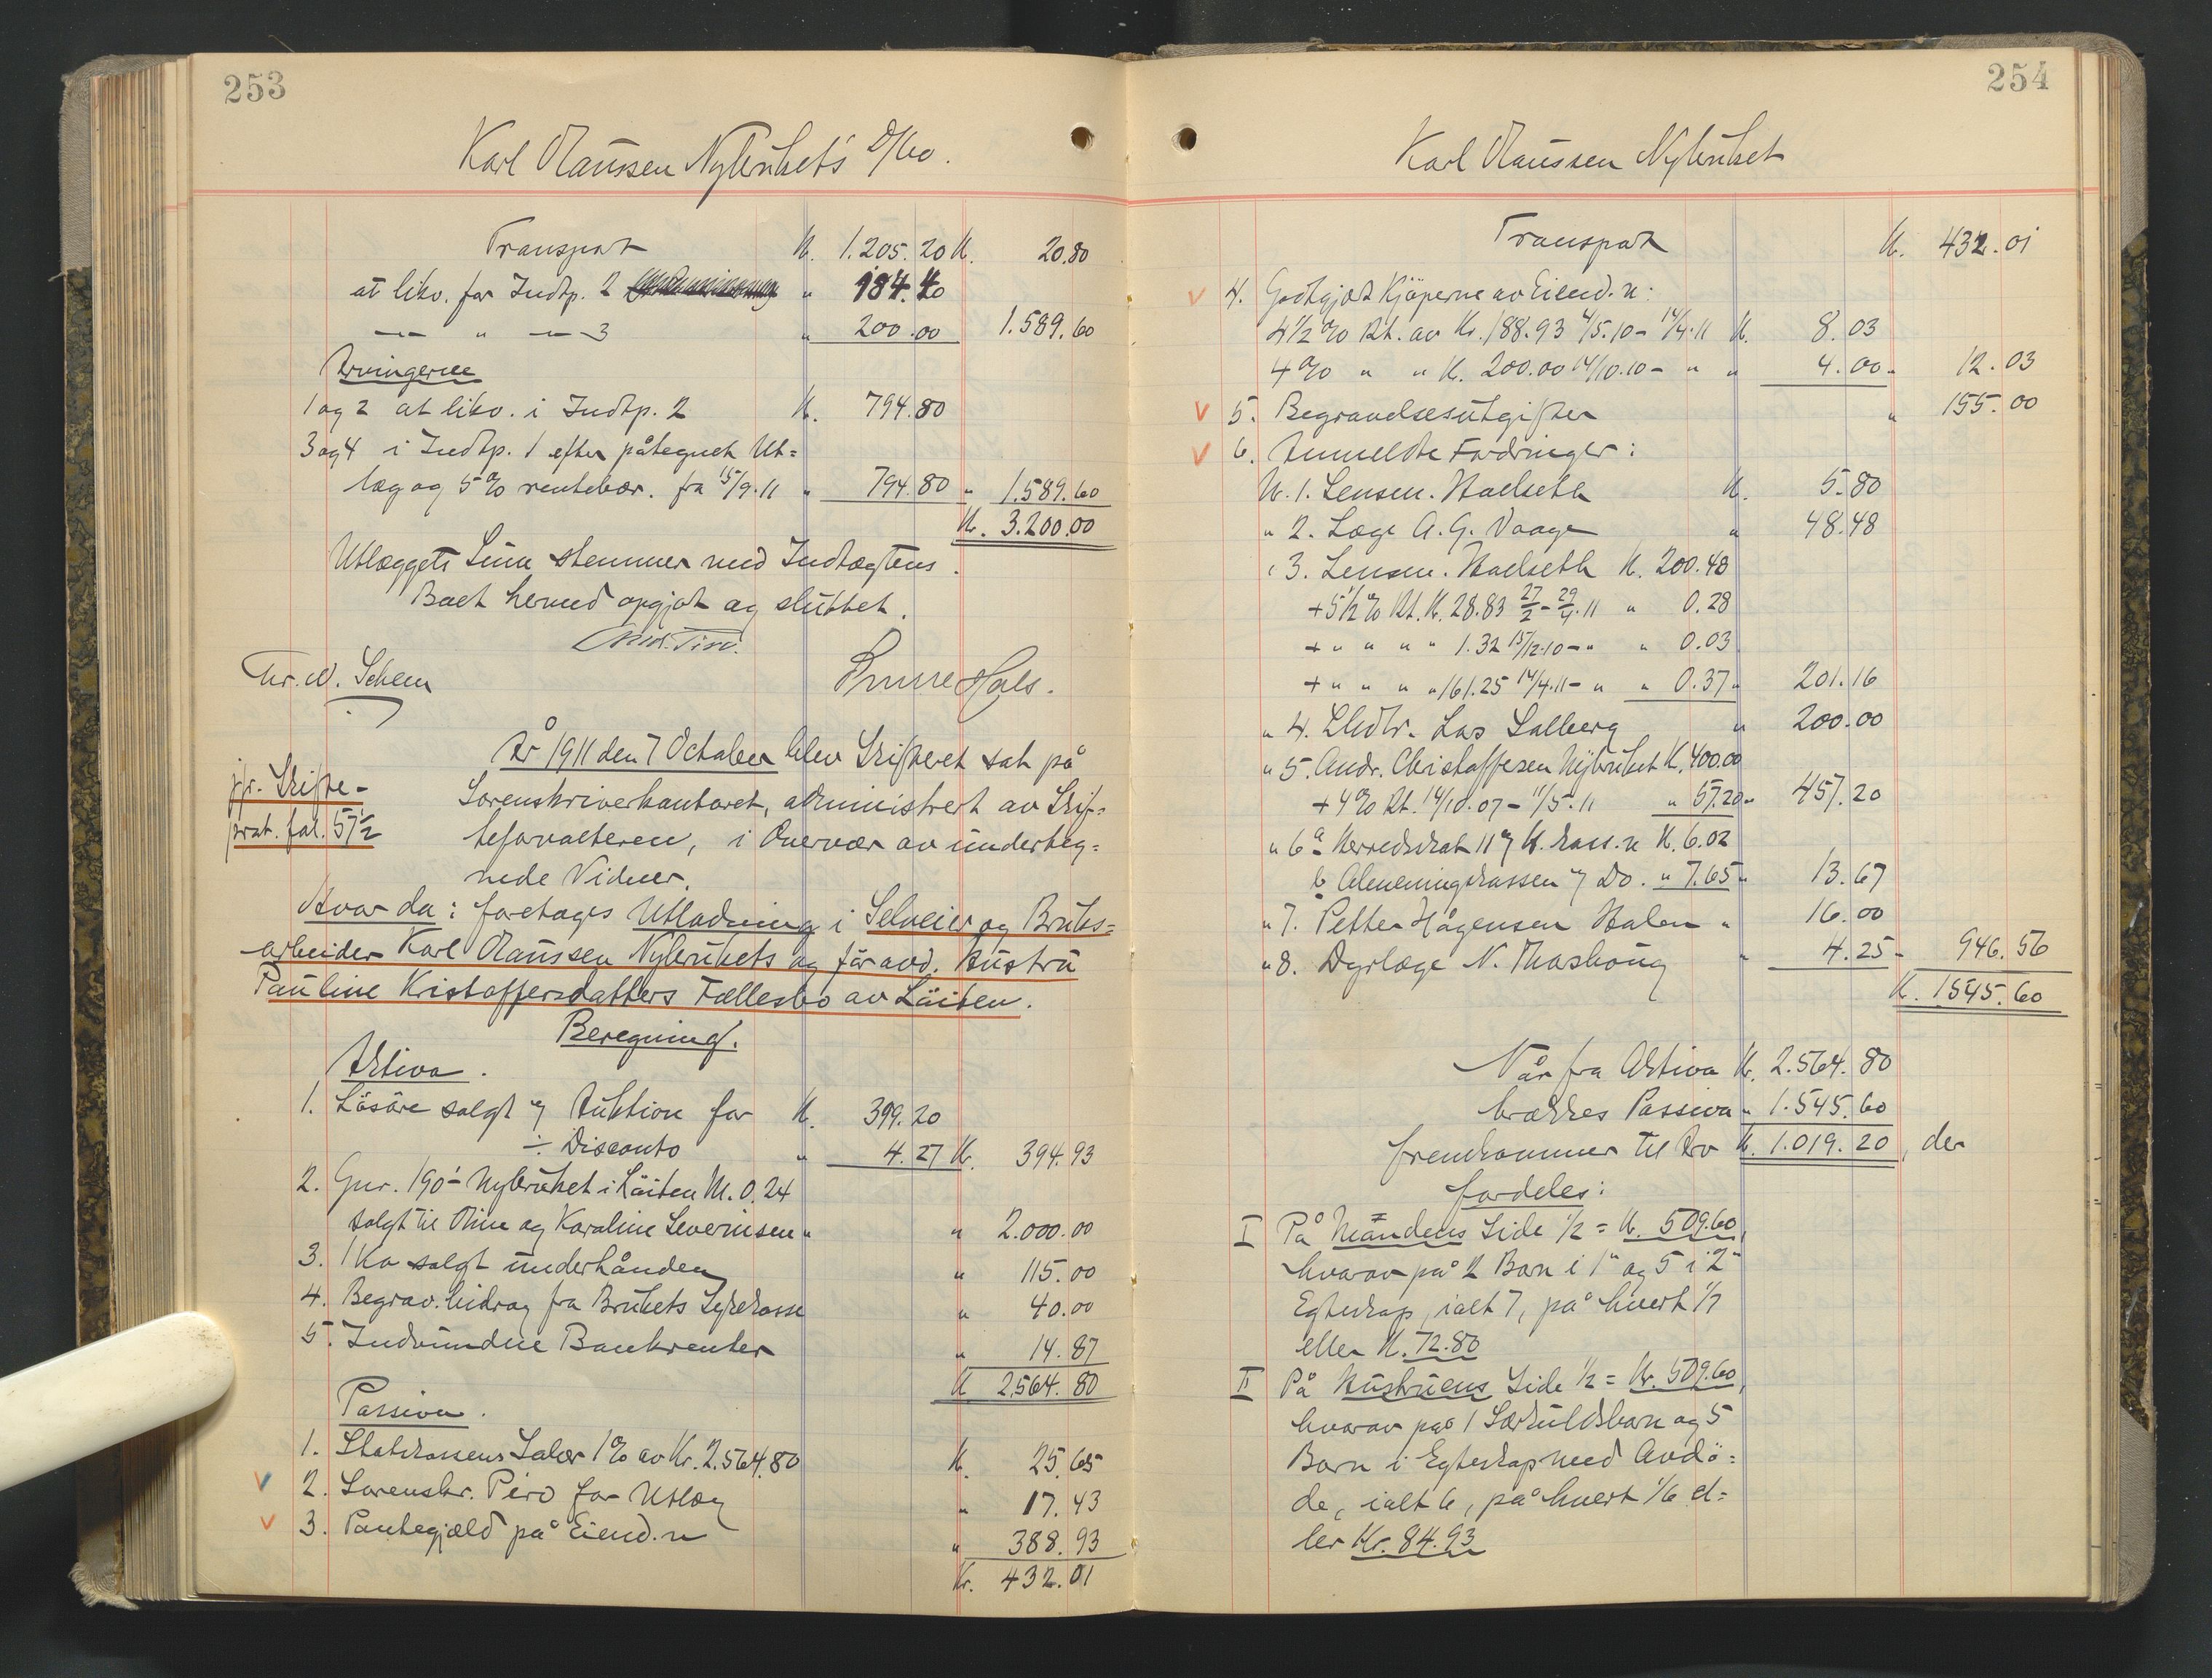 253
Karl Olaussen Nybruket's D/bo.
Transport K. 1.205.20 K. 20.80
at likv. for Indtp. 2 " 184.40
— " — 3 " 200.00 1.589.60
Arvingerne
1 og 2 at likv. i Indtp. 2 K. 794.80
3 og 4 i Indtp. 1 efter påtegnet Ut=
læg og 5% rentebær. fra 15/9.11 " 794.80 " 1.589.60
Kr. 3.200.00
Utlæggets Sum stemmer med Indtægtens.
Boet hermed opgjort og sluttet.
Chr. N. Schem
År 1911 den 7 October blev Skifteret sat på
Sorenskriverkontoret, administrert av Skif=
teforvalteren, i Overvær av underteg=
nede Vidner.
jfr. Skifte-
prot. fol. 572
Hvor da: foretages Utlodning i Selveier og Bruks=
arbeider Karl Olaussen Nybrukets og før avd. Hustru
Pauline Kristoffersdatters Fællesbo av Löiten.
Beregning.
Aktiva.
1. Lösöre solgt v Auktion for K. 399.20
÷ Disconto " 4.27 K. 394.93
2. Gnr. 190 - Nybruket i Löiten M. 0.24
solgt til Oline og Karoline Severinsen " " 2.000.00
3. 1 Ko solgt underhånden " 115.00
4. Begrav.bidrag fra Brukets Sykekasse " 40.00
5. Indvundne Bankrenter " 14.87
K 2.564.80
Passiva.
1. Statskassens Salær 1% av Kr. 2.564.80 K. 25.65
2. Sorenskr. Piro for Utlæg " 17.43
3. Pantegjæld på Eiend.n " 388.93
Kr. 432.01
254
Karl Olaussen Nybruket
Transport K. 432.01
4. Godtgjort Kjöperne av Eiend.n:
4 1/2 % Rt. av Kr. 188.93 4/5.10 - 14/4.11 K. 8.03
4% " " K. 200.00 14/10.10 - " " 4.00 " 12.03
5. Begravelsesutgifter " 155.00
6. Anmeldte Fordringer:
N. 1. Lensm. Hoelseth K. 5.80
" 2. Læge A. G. Vaage " 48.48
" 3. Lensm. Hoelseth K. 200.48
+ 5 1/2 % Rt. K. 28.83 27/2 - 29/4.11 " 0.28
+ " " " " 1.32 15/12.10 - " " 0.03
+ " " " " 161.25 14/4.11 - " " 0.37 " 201.16
" 4. Lhdlr. Lars Solberg " 200.00
" 5. Andr. Christoffersen Nybruket K. 400.00
+ 4% Rt. 14/10.07 - 11/5.11 " 57.20 " 457.20
" 6 a Herredskat 11 v H. kass.n K. 6.02
b Almenningskassen v Do. " 7.65 " 13.67
" 7. Petter Hågensen Holen " 16.00
" 8. Dyrlæge N. Thoshoug " 4.25 " 946.56
K. 1545.60
Når fra Aktiva Kr. 2.564.80
trækkes Passiva " 1.545.60
fremkommer til Arv K. 1.019.20, der
fordeles:
I På Mandens Side 1/2 = K. 509.60,
hvorav på 2 Barn i 1" og 5 i 2"
Egteskap, ialt 7, på hvert 1/7
eller K. 72.80
II På Hustruens Side 1/2 = Kr. 509.60,
hvorav på 1 Særkuldsbarn og 5
Barn i Egteskap med Avdö=
de, ialt 6, på hvert 1/6 el=
ler Kr. 84.93